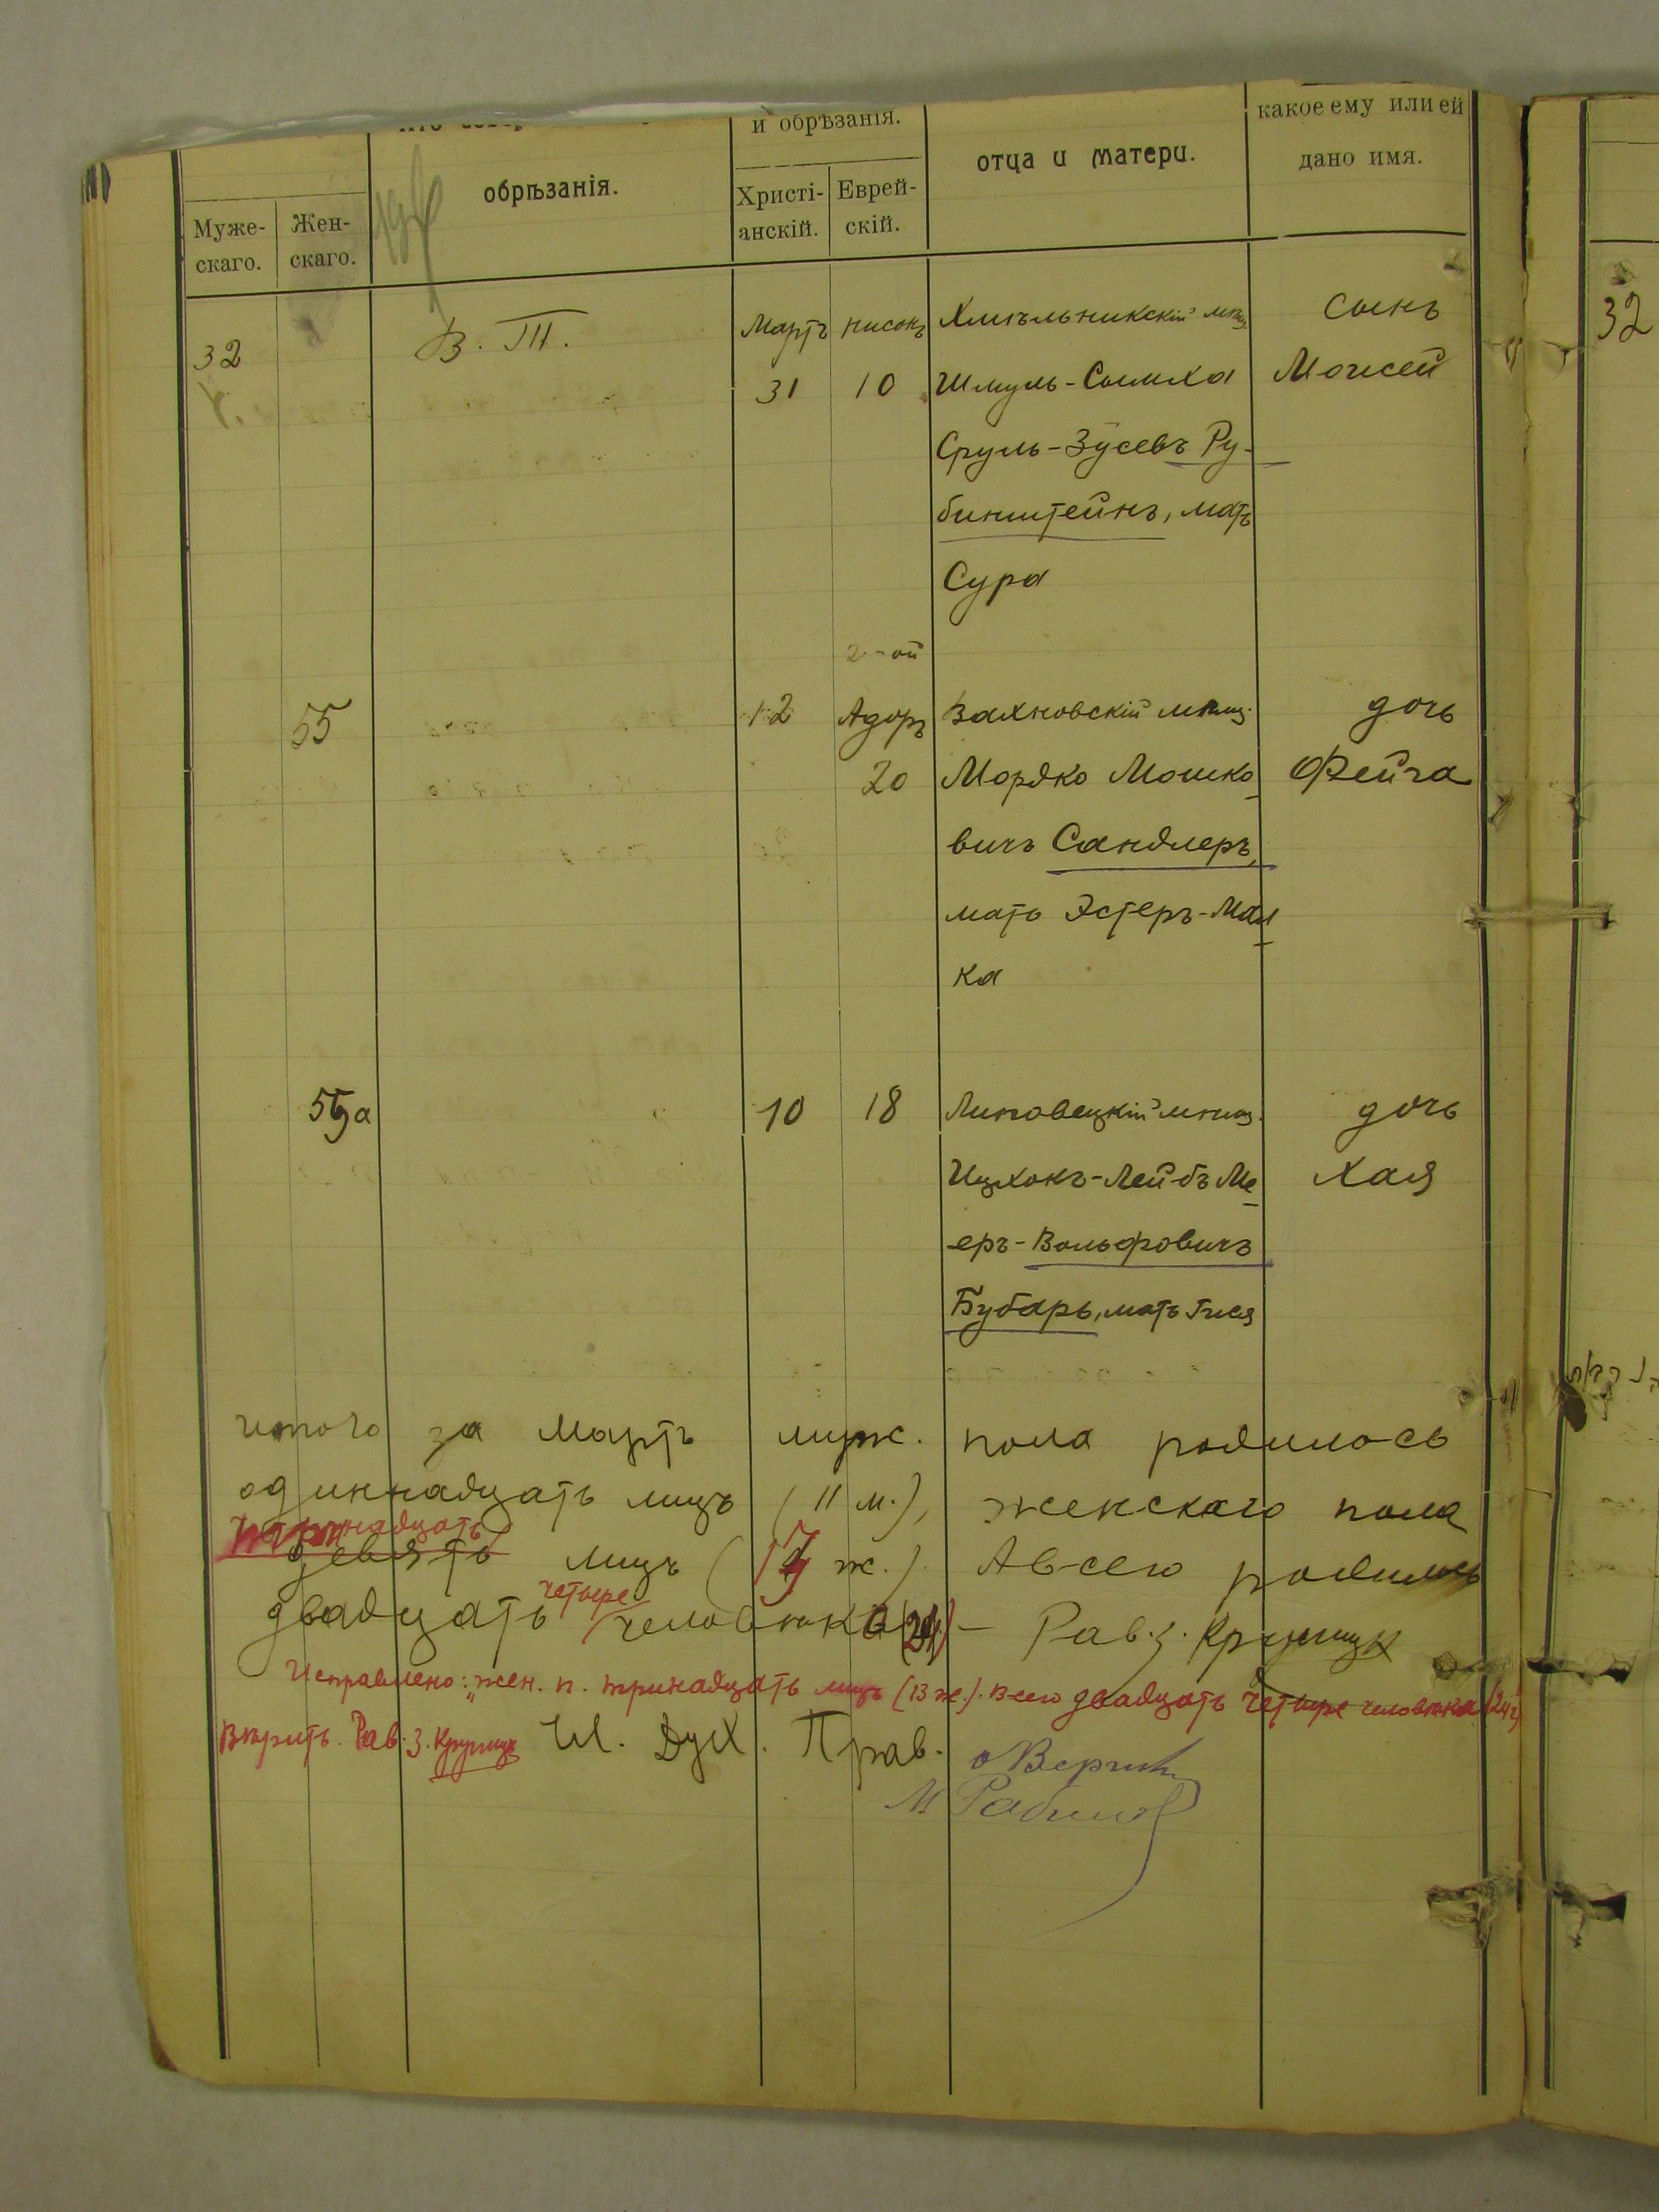 и обрѣзанія.
какое ему или ей
обрѣзанія.
отца и матери.
дано имя.
Муже-
скаго.
Жен-
скаго.
Христі-
анскій.
Еврей-
скій.
32
В. Т.
Мартъ
нисонъ
Хмѣльникскій мѣщ.
сынъ
32
31
10
Шмуль-Симха
Моисей
Сруль-Зусевъ Ру-
бинштейнъ, мать
Сура
2-ой
55
12
Адоръ
Вахновскій мѣщ.
дочь
20
Мордко Мошко-
Фейга
вичъ Сандлеръ,
мать Эстеръ-Мал-
ка
55а
10
18
Липовецкій мѣщ.
дочь
Ицхокъ-Лейбъ Ме-
Хая
еръ-Вольфовичъ
Бубарь, мать Гися
итого за Мартъ муж. пола родилось
одиннадцать лицъ (11 м.), женскаго пола
тринадцать
девять лицъ ( ж.). Авсего родилось
четыре
двадцать человѣка (24) - Рав. З. Крупникъ
Исправлено: „жен. п. тринадцать лицъ (13 ж.). Всего двадцать четыре человѣка (24 ч)
Вѣрить. Рав. З. Чл. Дух. Прав.